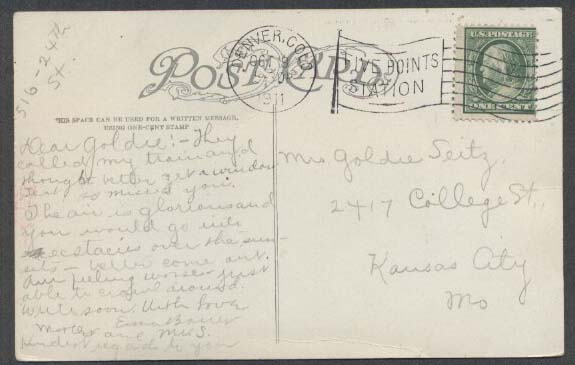 516-2
5x.
POST CARD
DENVER, COLO
OCT 9
1911
FIVE POINTS
STATION
U.S. POSTAGE
ONE CENT
THIS SPACE CAN BE USED FOR A WRITTEN MESSAGE,
USING ONE-CENT STAMP
Dear Goldie:- They
called my train and
thought better get a window
seat so missed you.
The air is glorious and
you would go into
ecstacies over the sun-
sets - better come out.
Am feeling worse just
able to crawl around.
Write soon. With love
and Mrs. S.
kindest regards to you
Mrs Goldie Seitz
2417 College St.,
Kansas City
Mo